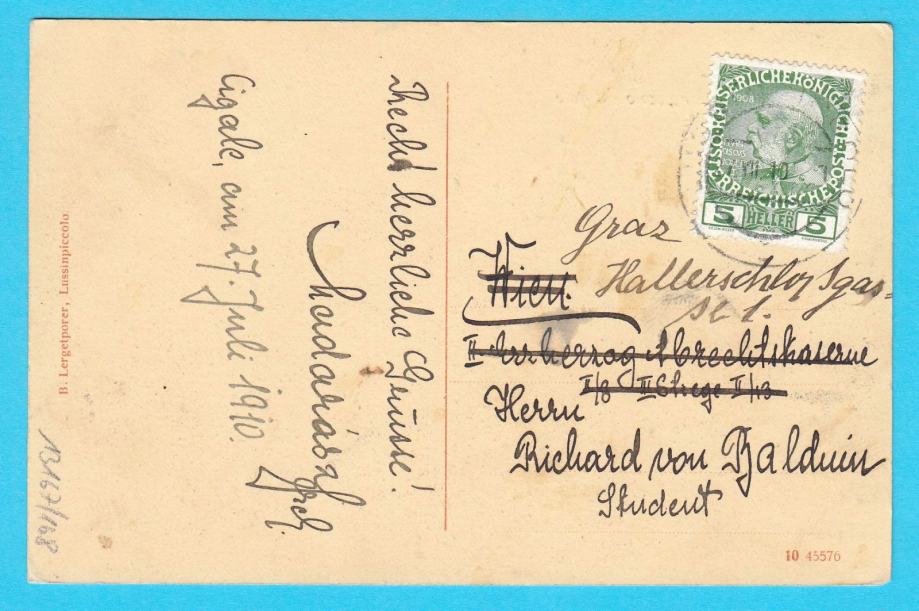 Cigale, am 27. Juli 1910.
Recht herrliche Grüsse!
B. Lergetporer, Lussinpiccolo.
13167/168
KAISERLICHEKÖNIGLICHE
ÖSTERREICHISCHEPOST
1908
5 HELLER 5
VII 10
Graz
Wien.
Hallerschloßgas-
se 1.
Erzherzog Albrechtskaserne
I/8 III Stiege II/13
Herrn
Richard von Balduin
Student
10 45576